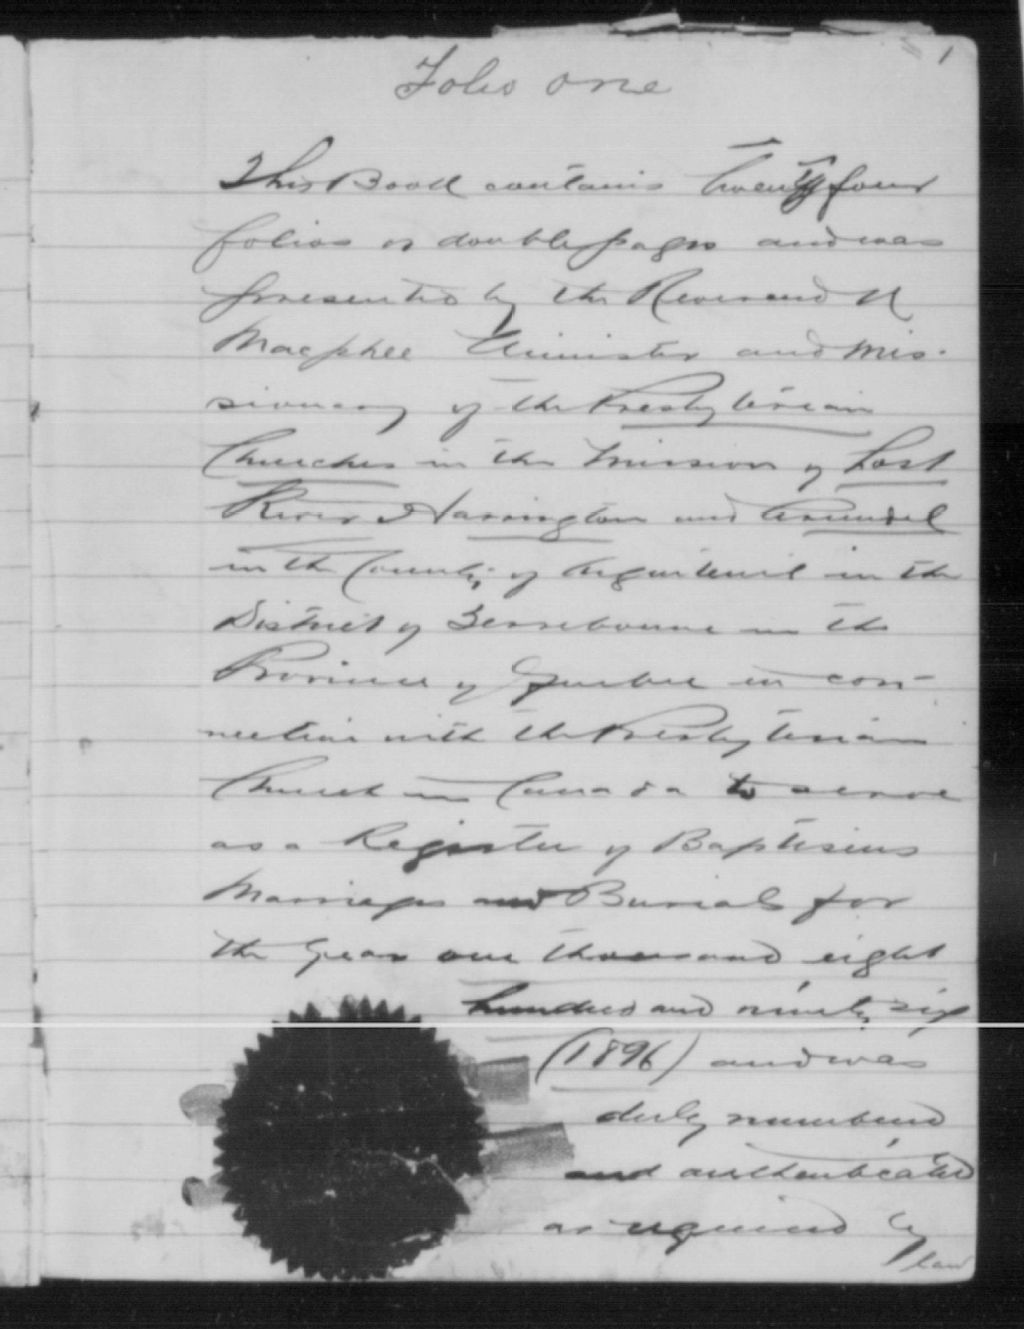 1
Folio one
This Book contains Twenty four
folios or double pages and was
presented by the Reverend N
Macphee Minister and Mis-
sionary of the Presbyterian
Churches in the Mission of Lost
River Harrington and Arundel
in the County of Argenteuil in the
District of Terrebonne in the
Province of Quebec in con-
nection with the Presbyterian
Church in Canada to serve
as a Register of Baptisms
Marriages and Burials for
the Year one thousand eight
hundred and ninety six
(1896) and was
duly numbered
and authenticated
as required by
law